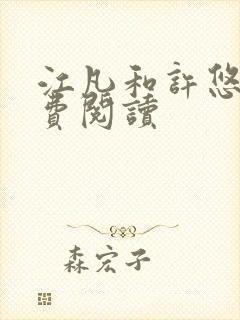 江凡和許悠
費閱讀
森宏子